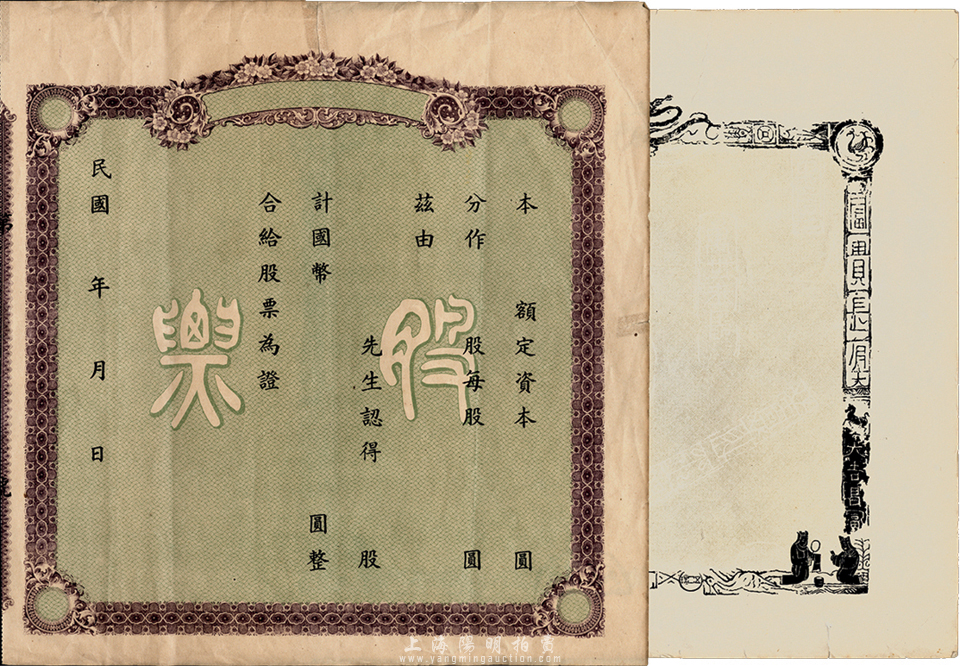 本 額定資本 圓
分作 股每股 圓
茲由
先生認得 股
計國幣 圓整
合給股票為證
民國 年 月 日
股票
上海陽明拍賣
www.yangmingauction.com